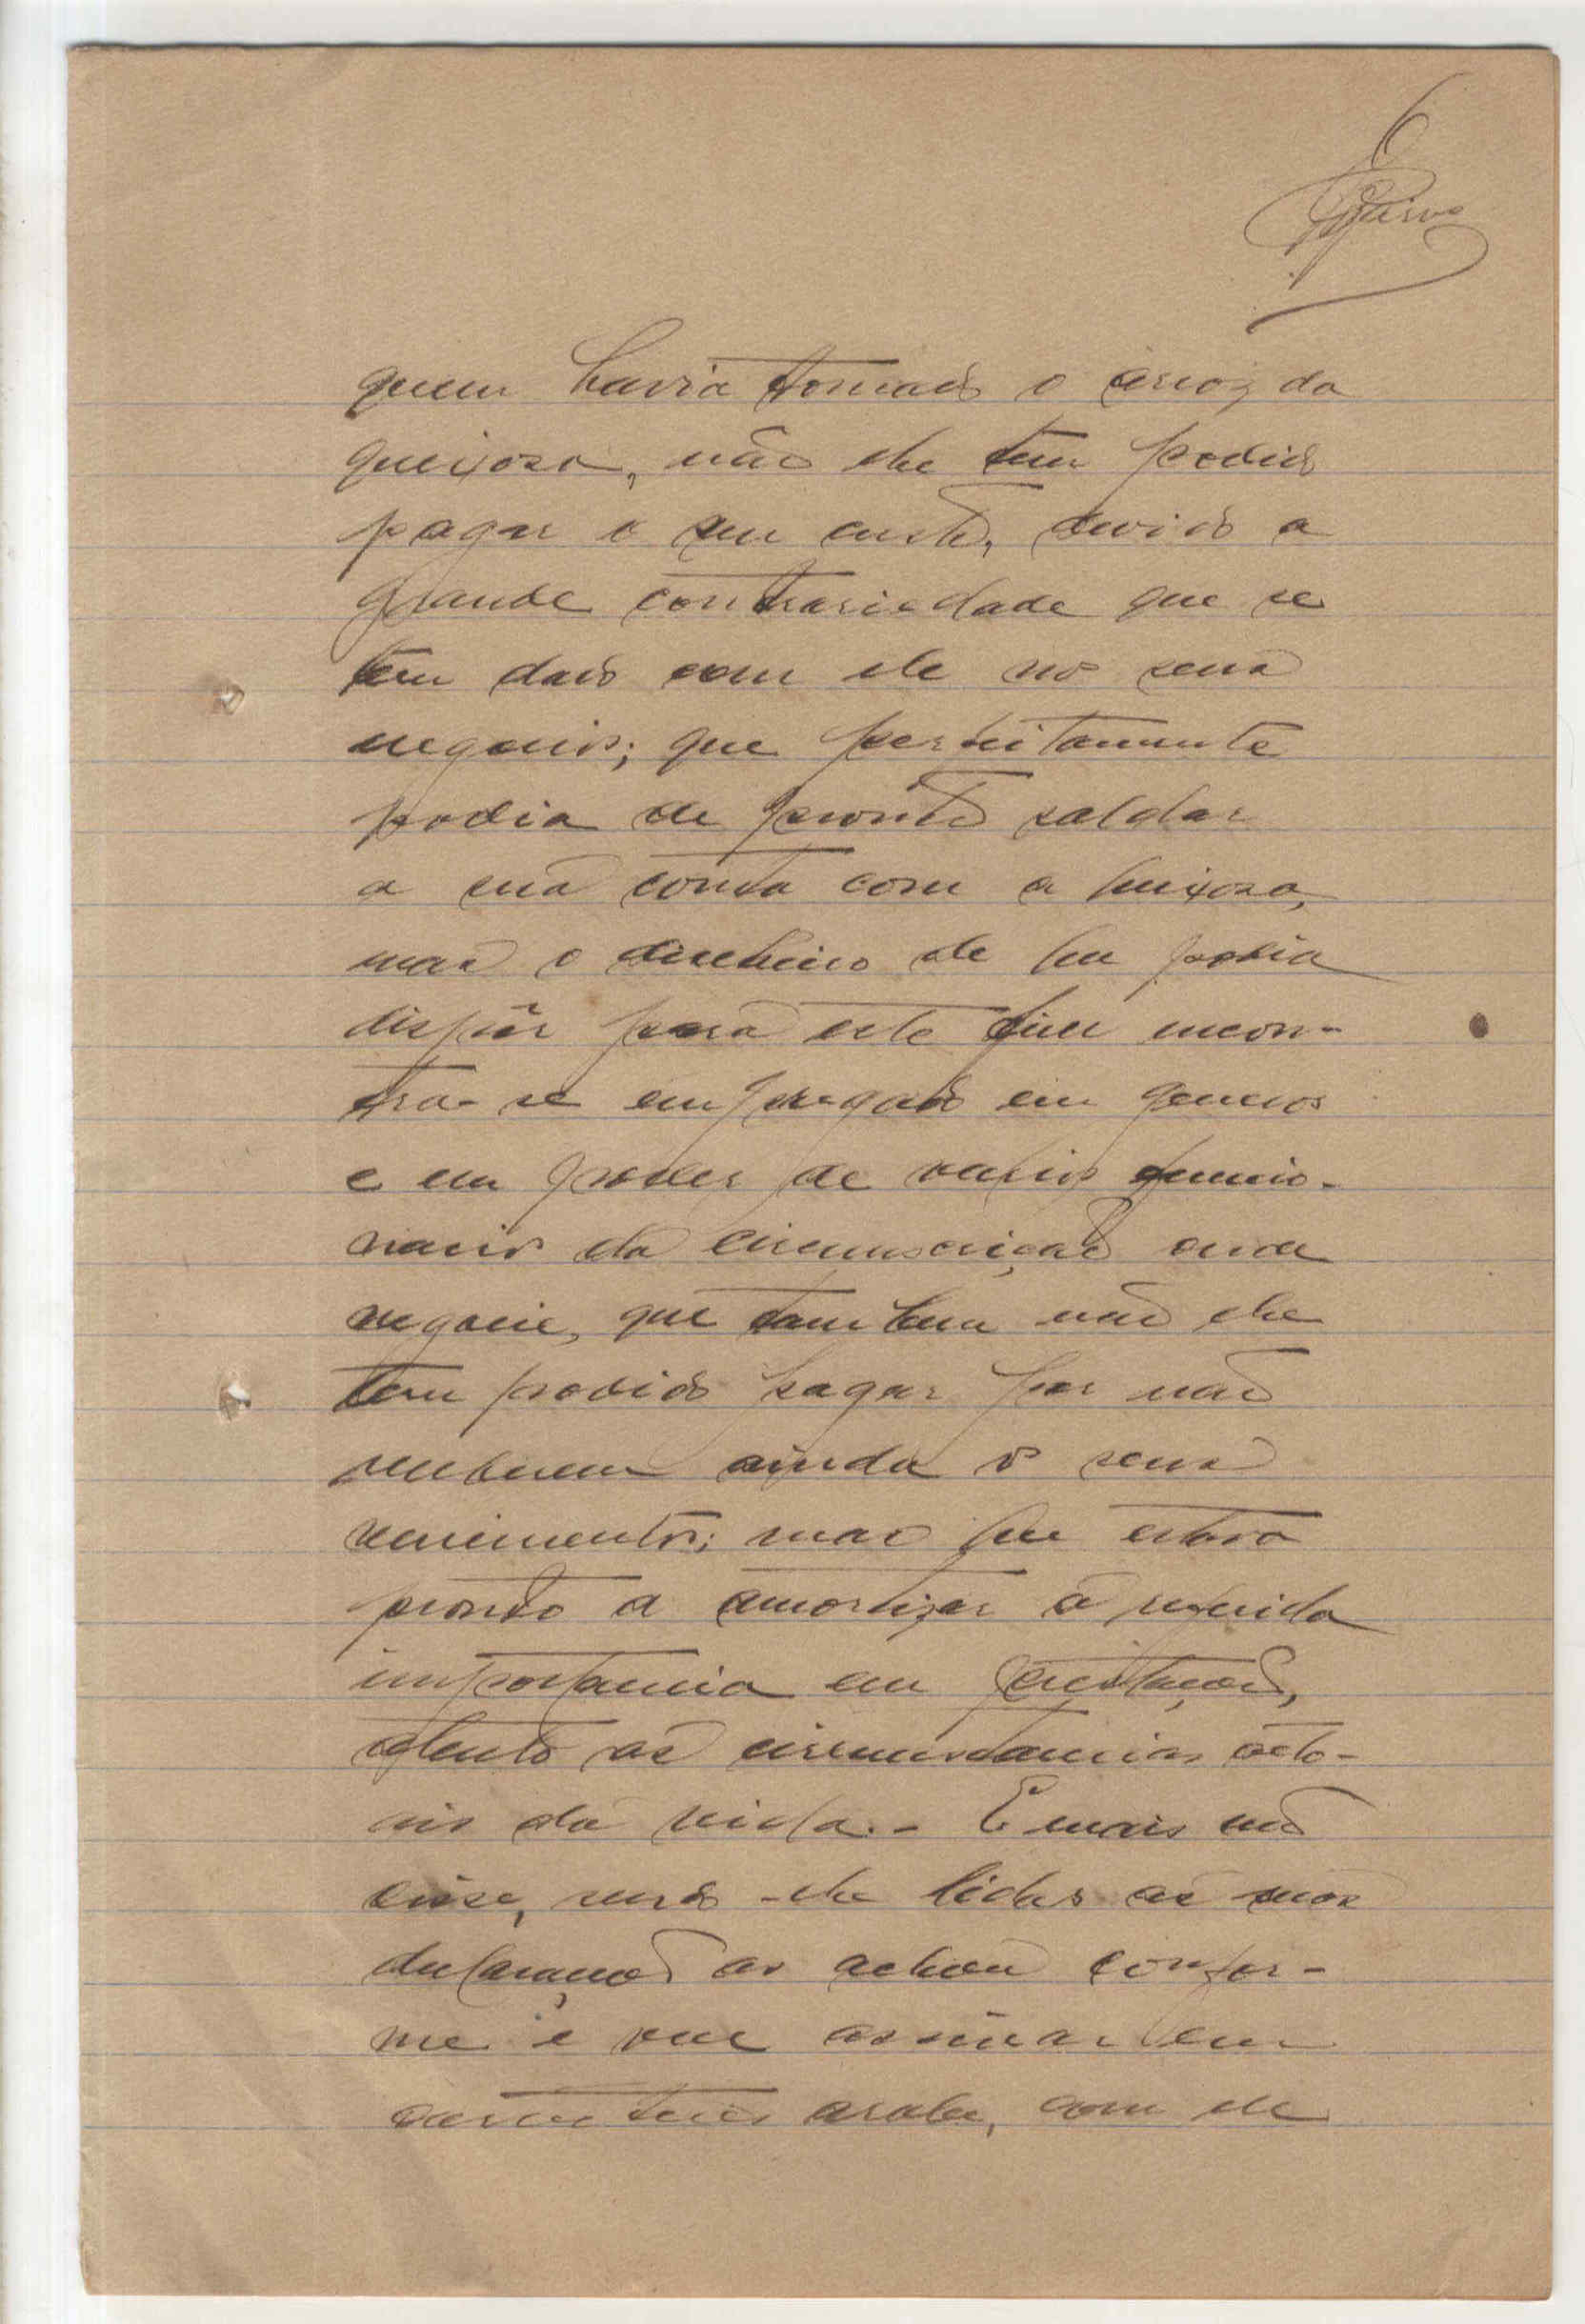 6
quem havia tomado o arroz da
queixosa, não lhe tem podido
pagar o seu custo, devido a
grande contrariedade que se
tem dado com ele no seus
negocios; que perfeitamente
podia de pronto saldar
a sua conta com a queixosa,
mas o dinheiro de que podia
dispôr para este fim encon-
tra-se empregado em generos
e em poder de varios funcio-
narios da circunscrição onde
negoceia, que tambem não lhe
tem podido pagar por não
receberem ainda os seus
vencimentos; mas que estava
pronto a amortizar a referida
importancia em prestações,
atento as circumstancias actu-
ais da vida.- E mais não
disse, sendo-lhe lidas as suas
declarações as achou confor-
me e vae assinar em
caracteres arabe, com ele